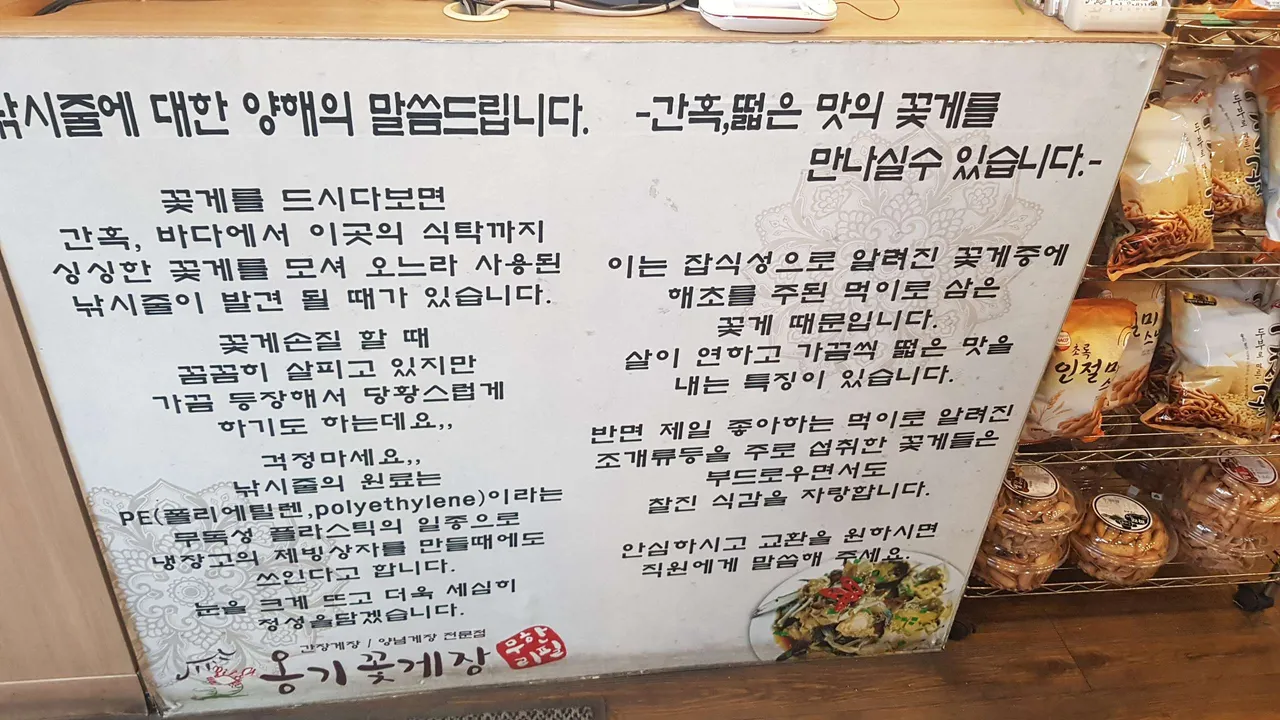 낚시줄에 대한 양해의 말씀드립니다.
꽃게를 드시다보면
간혹, 바다에서 이곳의 식탁까지
싱싱한 꽃게를 모셔 오느라 사용된
낚시줄이 발견 될 때가 있습니다.
꽃게손질 할 때
꼼꼼히 살피고 있지만
가끔 등장해서 당황스럽게
하기도 하는데요,,
걱정마세요,,
낚시줄의 원료는
PE(폴리에틸렌,polyethylene)이라는
무독성 플라스틱의 일종으로
냉장고의 제빙상자를 만들때에도
쓰인다고 합니다.
눈을 크게 뜨고 더욱 세심히
정성을담겠습니다.
간장게장 / 양념게장 전문점
옹기꽃게장
무한
리필
-간혹,떫은 맛의 꽃게를
만나실수 있습니다.-
이는 잡식성으로 알려진 꽃게중에
해초를 주된 먹이로 삼은
꽃게 때문입니다.
살이 연하고 가끔씩 떫은 맛을
내는 특징이 있습니다.
반면 제일 좋아하는 먹이로 알려진
조개류등을 주로 섭취한 꽃게들은
부드로우면서도
찰진 식감을 자랑합니다.
안심하시고 교환을 원하시면
직원에게 말씀해 주세요.
두부로
초록
인절미
두부로